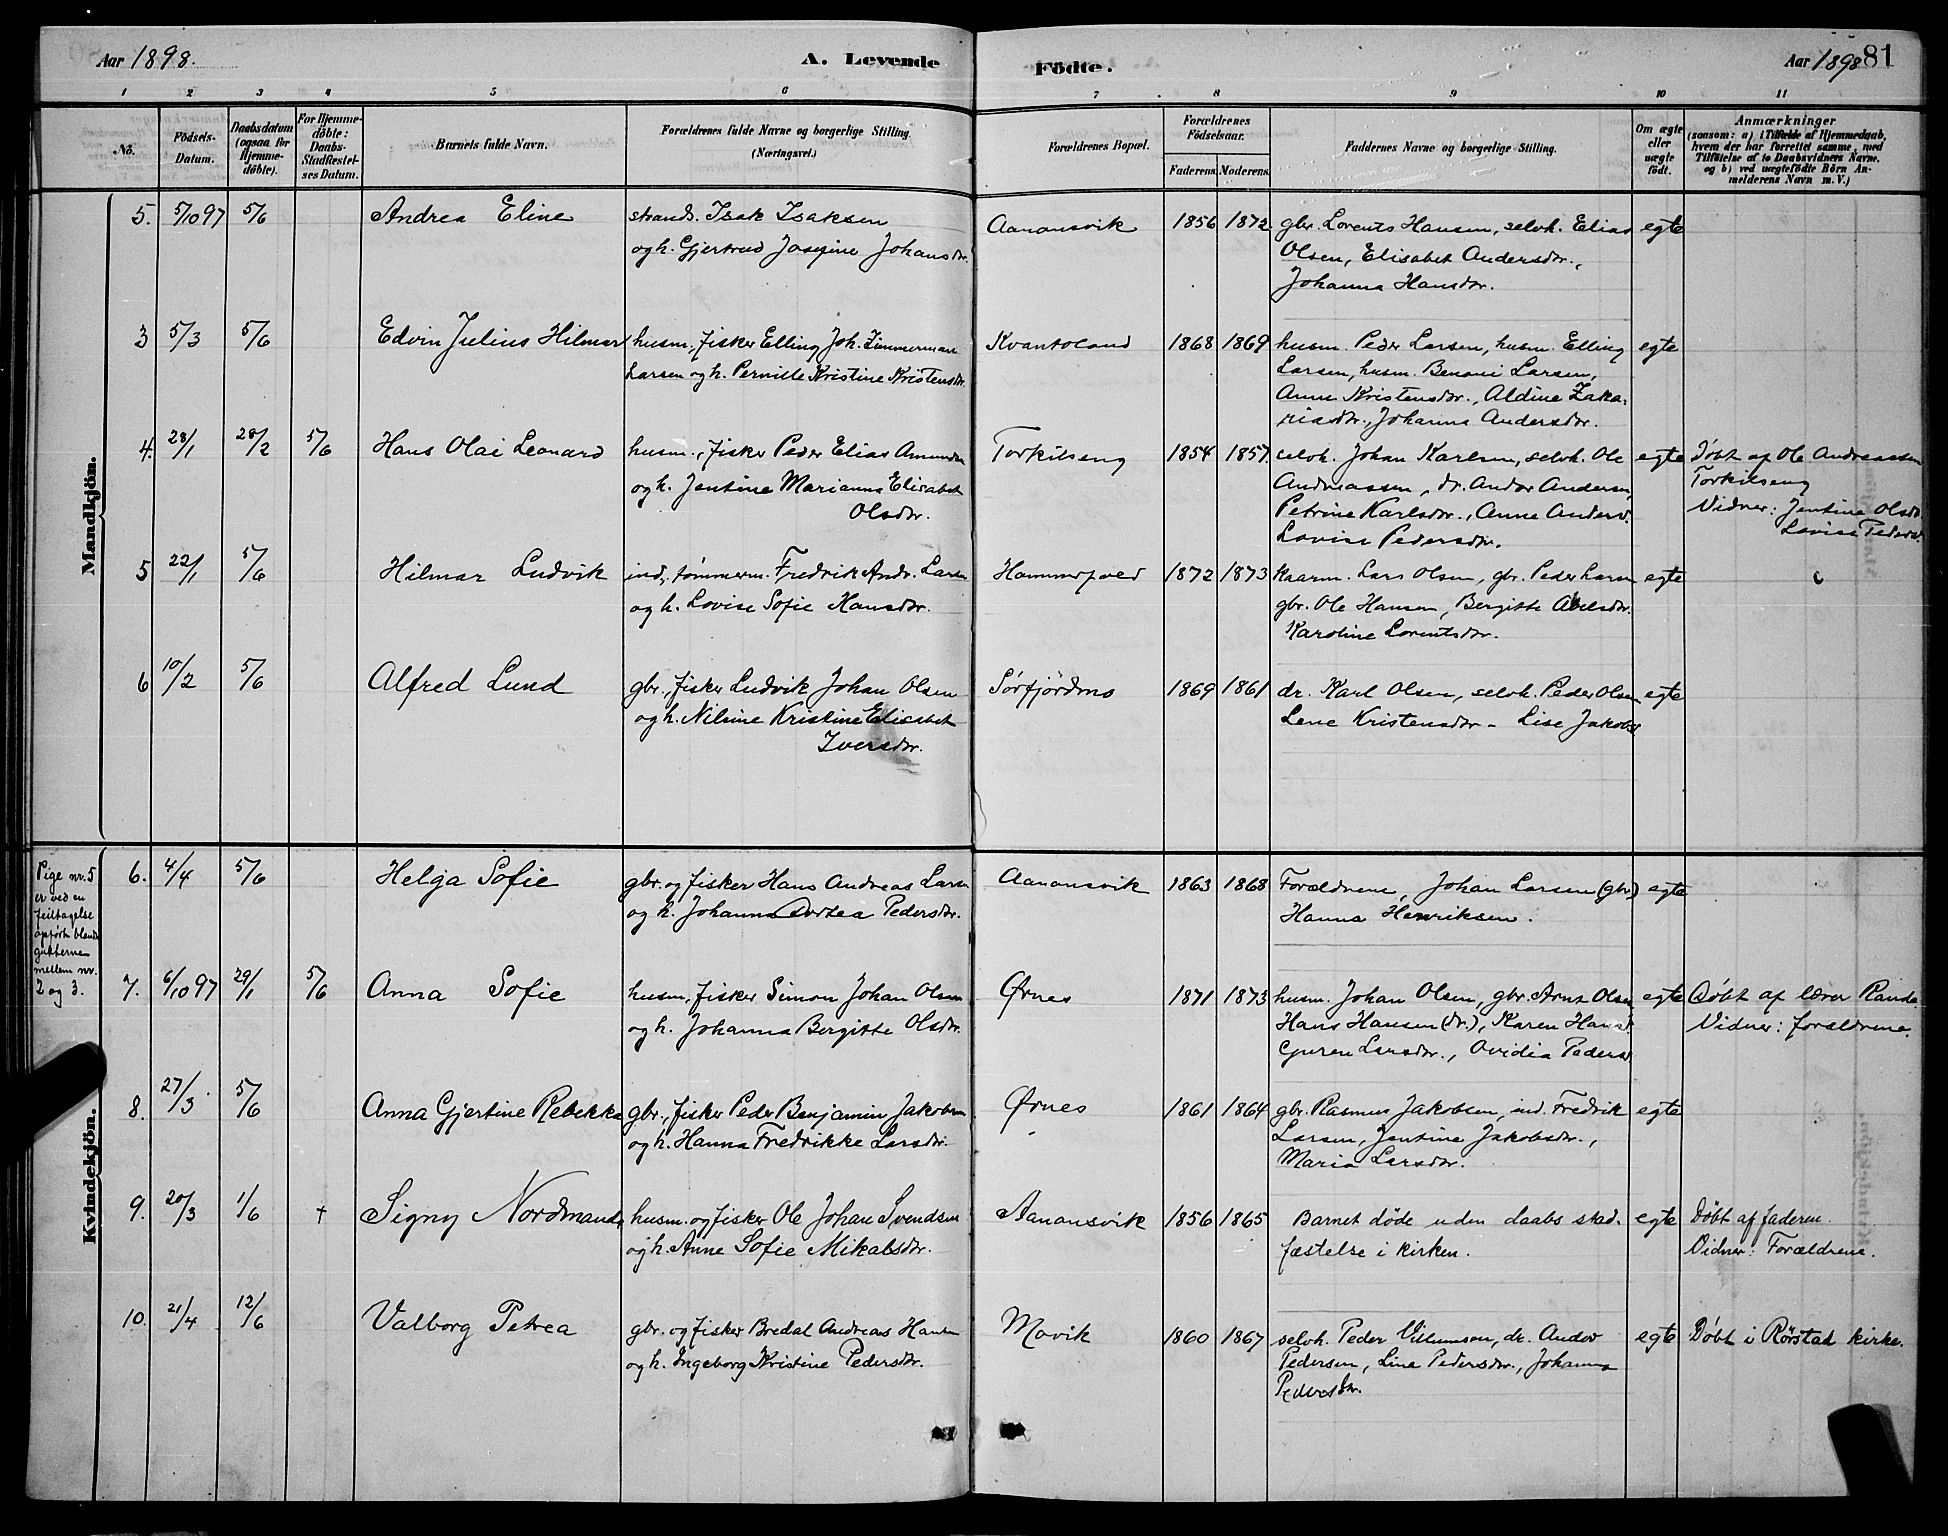 Aar 1898.
A. Levende
Födte.
Aar 1898
81
1 2 3 4 5 6 7 8 9 10 11
No.
Födsels-
Datum.
Daabsdatum
(ogsaa for
Hjemme-
döbte).
For Hjemme-
döbte:
Daabs-
Stadfæstel-
ses Datum.
Barnets fulde Navn.
Forældrenes fulde Navne og borgerlige Stilling
(Næringsvei.)
Forældrenes Bopæl.
Forældrenes
Födselsaar.
Faderens. Moderens.
Faddernes Navne og borgerlige Stilling.
Om ægte
eller
uægte
födt.
Anmærkninger
(saasom: a) i Tilfælde af Hjemmedaab,
hvem der har forrettet samme, med
Tilföielse af to Daabsvidners Navne.
og b) ved uægtefödte Börn An-
melderens Navn m. V.)
Mandkjön.
5. 5/10 97 5/6 Andrea Eline
strands. Isak Isaksen
og h. Gjertrud Josefine Johansdr.
Aanonsvik 1856 1872.
gbr. Lorents Hansen, selvh. Elias
Olsen, Elisabet Andersdr.,
Johanna Hansdr.
egte
3 5/3 5/6 Edvin Julius Hilmar
husm. fisker Elling Joh. Zimmerman
Larsen og h. Pernille Kristine Kristensdr.
Kvantoland 1868 1869
husm. Peder Larsen, husm. Elling
Larsen, husm. Benoni Larsen,
Anne Kristensdr., Aldine Zaka-
riasdr., Johanna Andersdr.
egte
4. 28/1 28/2 5/6 Hans Olai Leonard
husm., fisker Peder Elias Amundsen
og h. Jentine Marianna Elisabet
Olsdr.
Torkilseng 1854 1857.
selvh. Johan Karlsen, selvh. Ole
Andreassen, dr. Andor Andersen,
Petrine Karlsdr., Anne Andersd.
Lovise Pedersdr.
egte
Döbt af Ole Andreassen
Torkilseng
Vidner: Jentine Olsdr.
Lovise Pedersd.
5 22/1 5/6 Hilmar Ludvik
ind., tömmerm. Fredrik Andr. Larsen
og h. Lovise Sofie Hansdr.
1872 1873
kaarm. Lars Olsen, gbr. Peder Larsen
gbr. Ole Hansen, Bergitte Abelsdr.
Karoline Lorentsdr.
egte
6 10/2 5/6 Alfred Lund
gbr., fisker Ludvik Johan Olsen
og h. Nilsine Kristine Elisabet
Iversdr.
Sörfjördmo 1869 1861
dr. Karl Olsen, selvh. Peder Olsen
Lene Kristensdr - Lise Jakobsd
egte
Kvindekjön.
Pige nr. 5
er ved en
feiltagelse
opfört blandt
gutterne
mellem nr.
2 og 3.
6. 4/4 5/6 Helga Sofie
gbr. og fisker Hans Andreas Larsen
og h. Johanna Dortea Pedersdr.
Aanonsvik 1863 1868
Forældrene, Johan Larsen (gbr)
Hanna Henriksen.
egte
7. 6/10 97 29/1 5/6 Anna Sofie
husm., fisker Simon Johan Olsen
og h. Johanna Bergitte Olsdr.
Ørnes 1871 1873
husm. Johan Olsen, gbr. Arnt Olsen
Hans Hansen (dr.), Karen Hansd.
Guren Larsdr., Ovidia Pedersd
egte
Döbt af lærer Randa.
Vidner: forældrene.
8. 27/3 5/6 Anna Gjertine Rebekka
gbr., fisker Peder Benjamin Jakobsen
og h. Hanna Fredrikke Larsdr.
Ørnes 1861 1864
gbr. Rasmus Jakobsen, ind. Fredrik
Larsen, Jentine Jakobsdr.,
Maria Larsdr.
egte
9. 20/3 1/6 + Signy Nordmanda
husm. og fisker Ole Johan Svendsen
og h. Anne Sofie Mikalsdr.
Aanonsvik 1856 1865
Barnet döde uden daabs stad-
fæstelse i kirken.
egte
Döbt af faderen.
Vidner: Forældrene.
10. 21/4 12/6 Valborg Petrea
gbr. og fisker Bredal Andreas Hansen
og h. Ingeborg Kristine Pedersdr.
Movik 1860 1867
selvh. Peder Villumsen, dr. Andor
Pedersen, Lina Pedersdr., Johanna
Pedersdr.
egte
Döbt i Rörstad kirke.